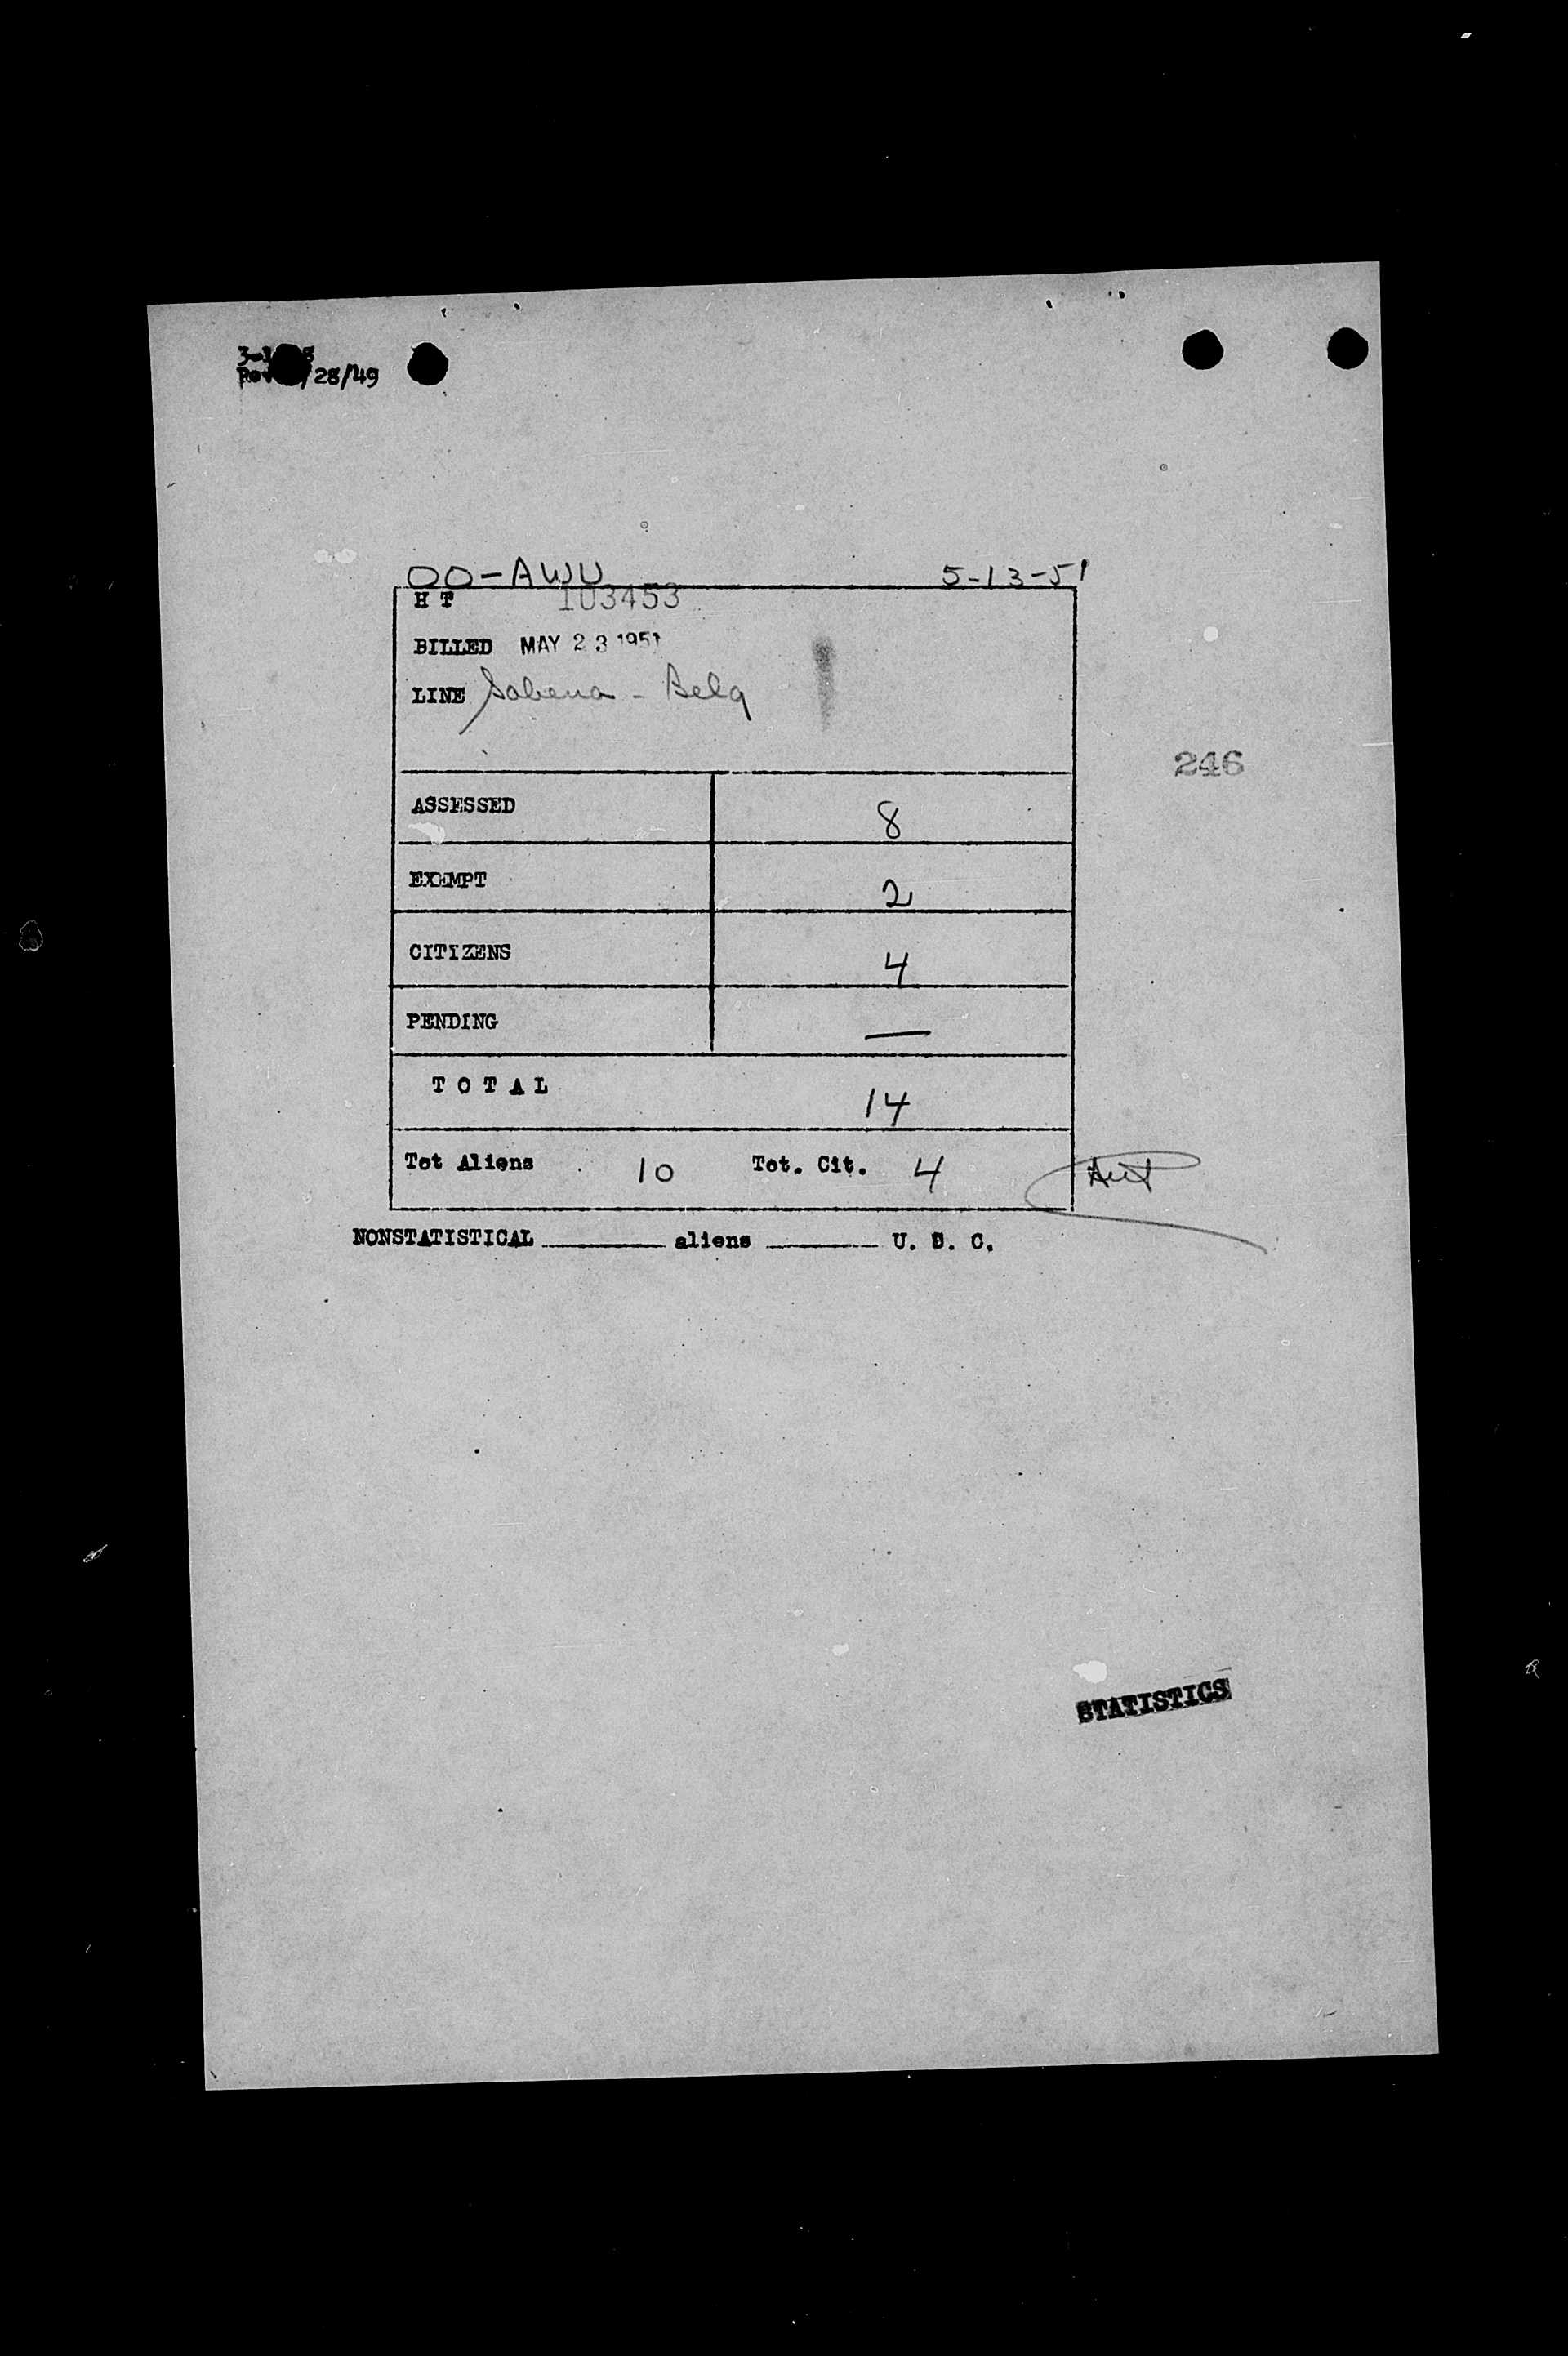 Rev /28/49
OO-AWU 5-13-51
H T 103453
BILLED MAY 23 1951
LINE Sabena - Belg
246
ASSESSED 8
EXEMPT 2
CITIZENS 4
PENDING —
TOTAL 14
Tot Aliens 10 Tot. Cit. 4
NONSTATISTICAL ________ aliens ________ U. S. C.
STATISTICS